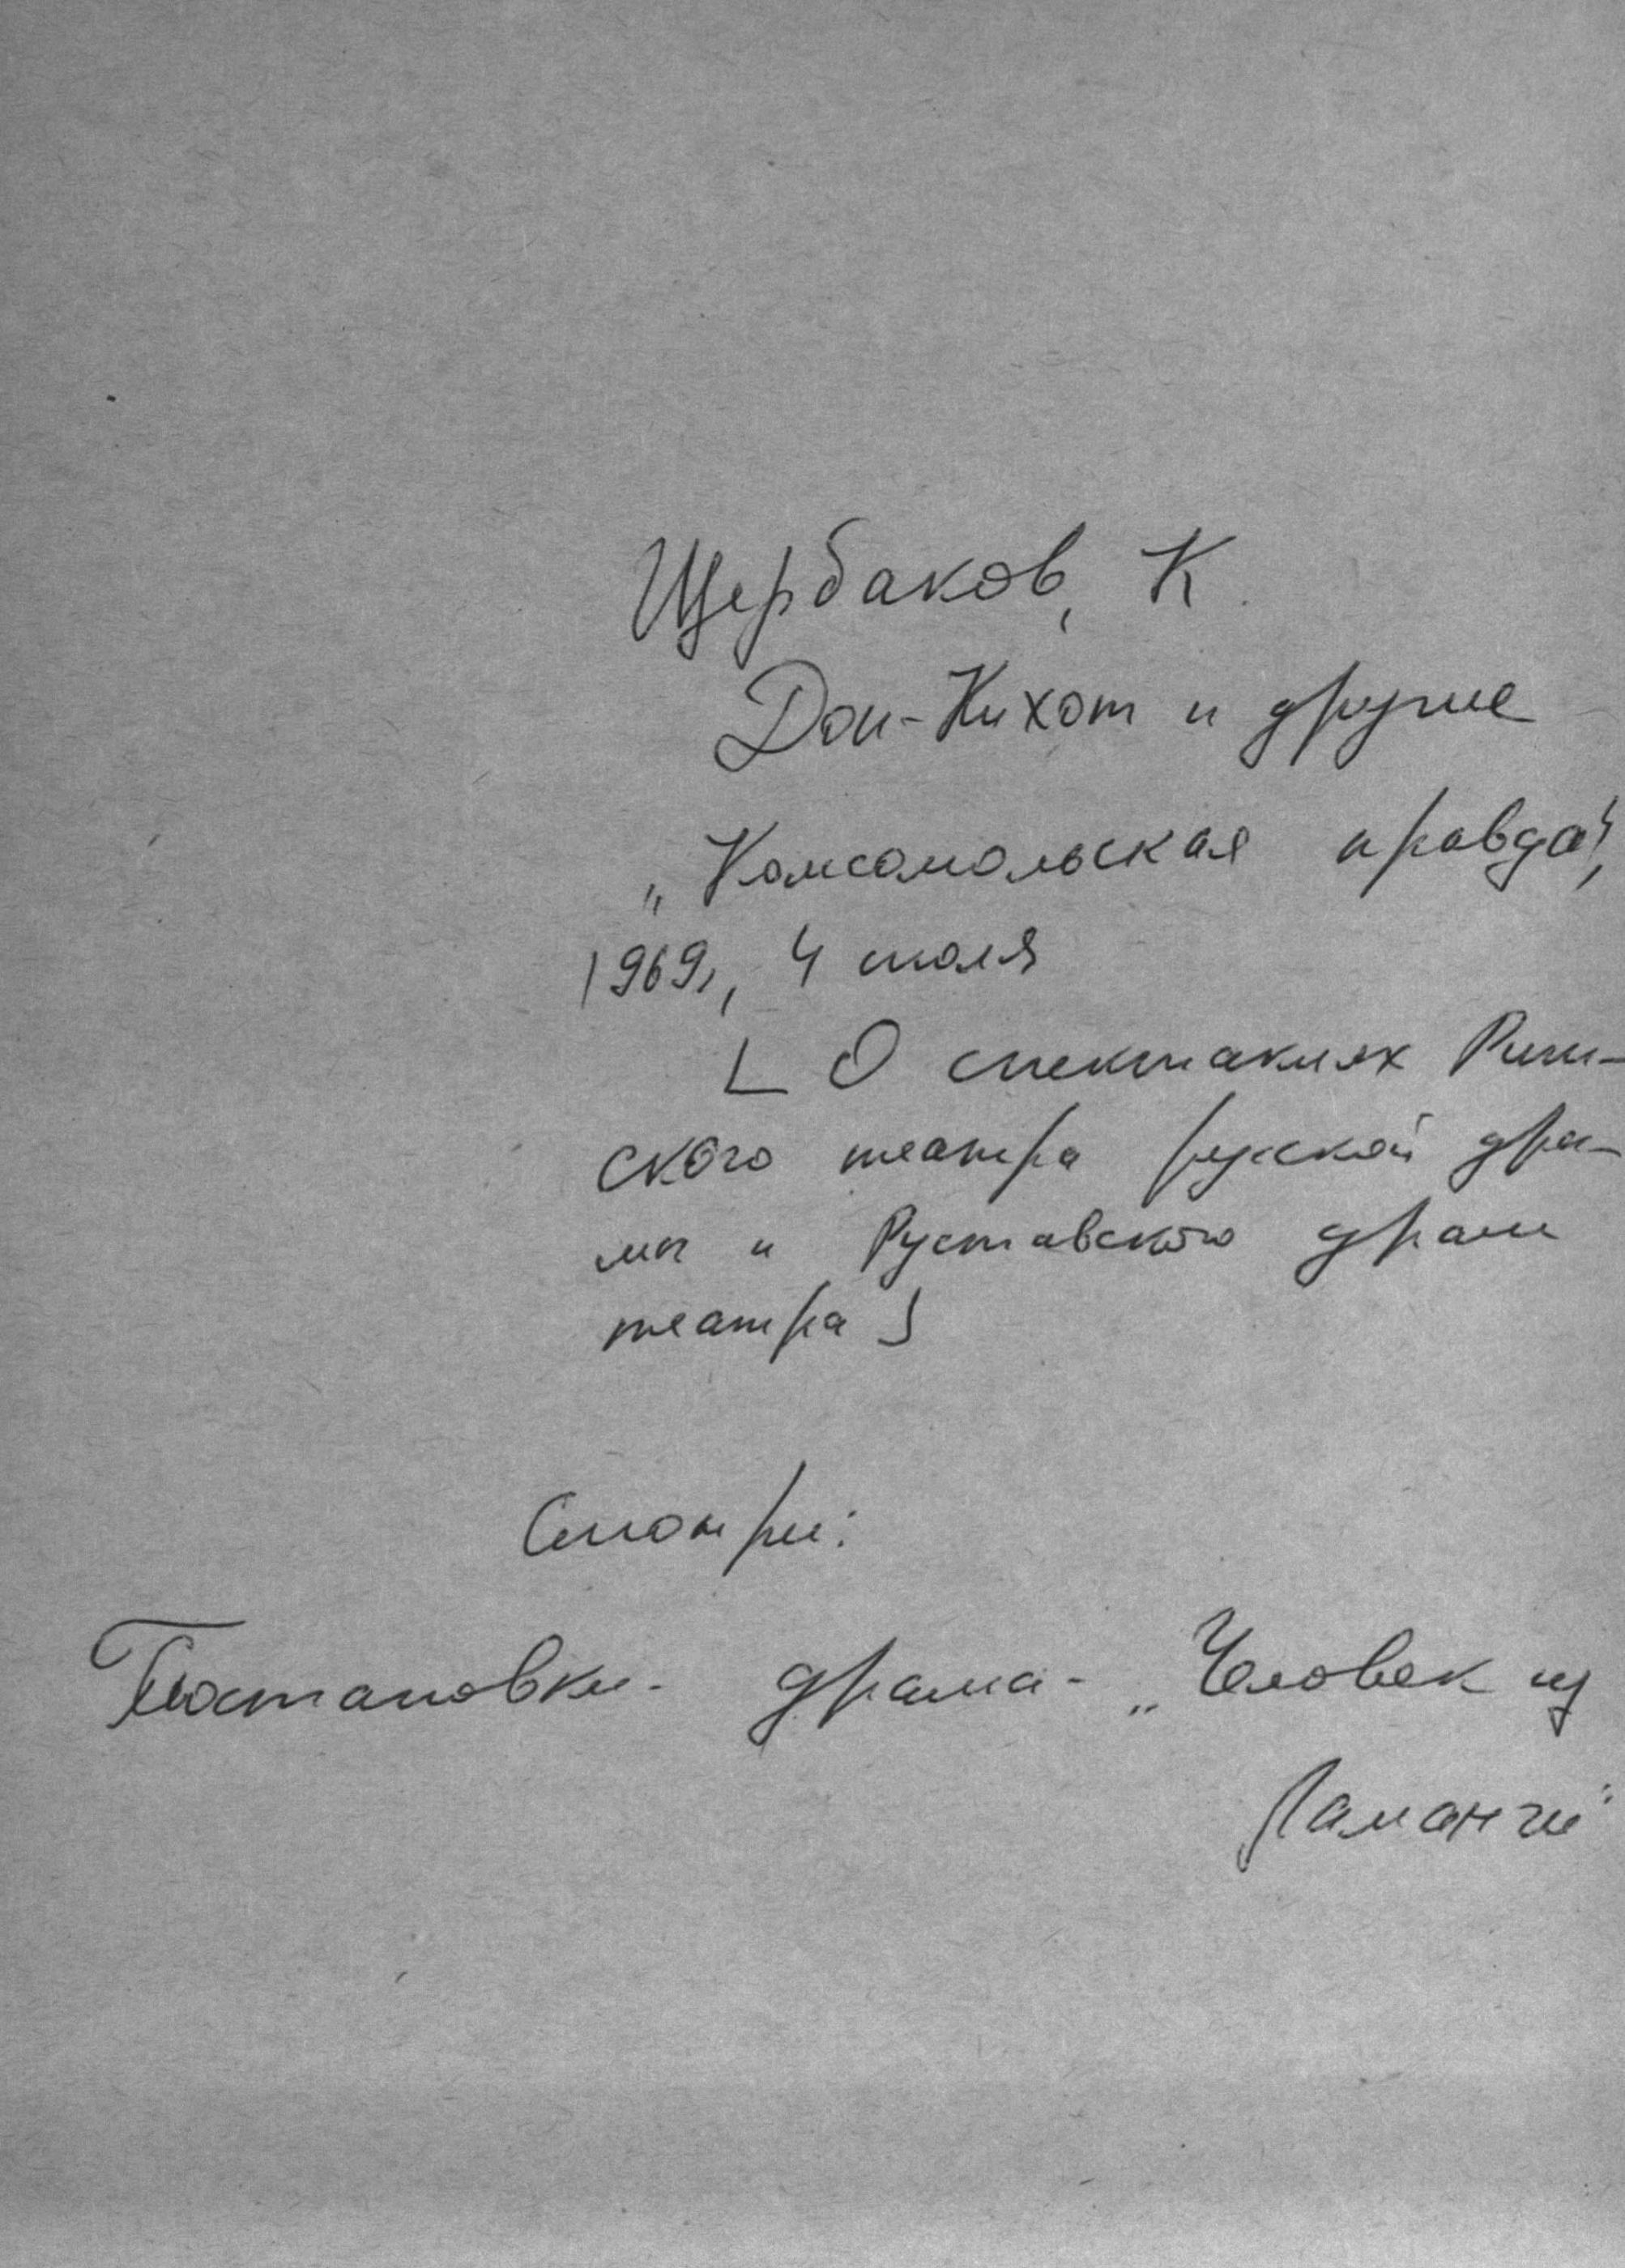 Щербаков, К.
Дон-Кихот и другие
„Комсомольская правда“,
1969, 4 июля
[О спектаклях Риж-
ского театра русской дра-
мы и Руставского драм
театра]
Смотри:
Постановки - драма - „Человек из
Ламанчи“